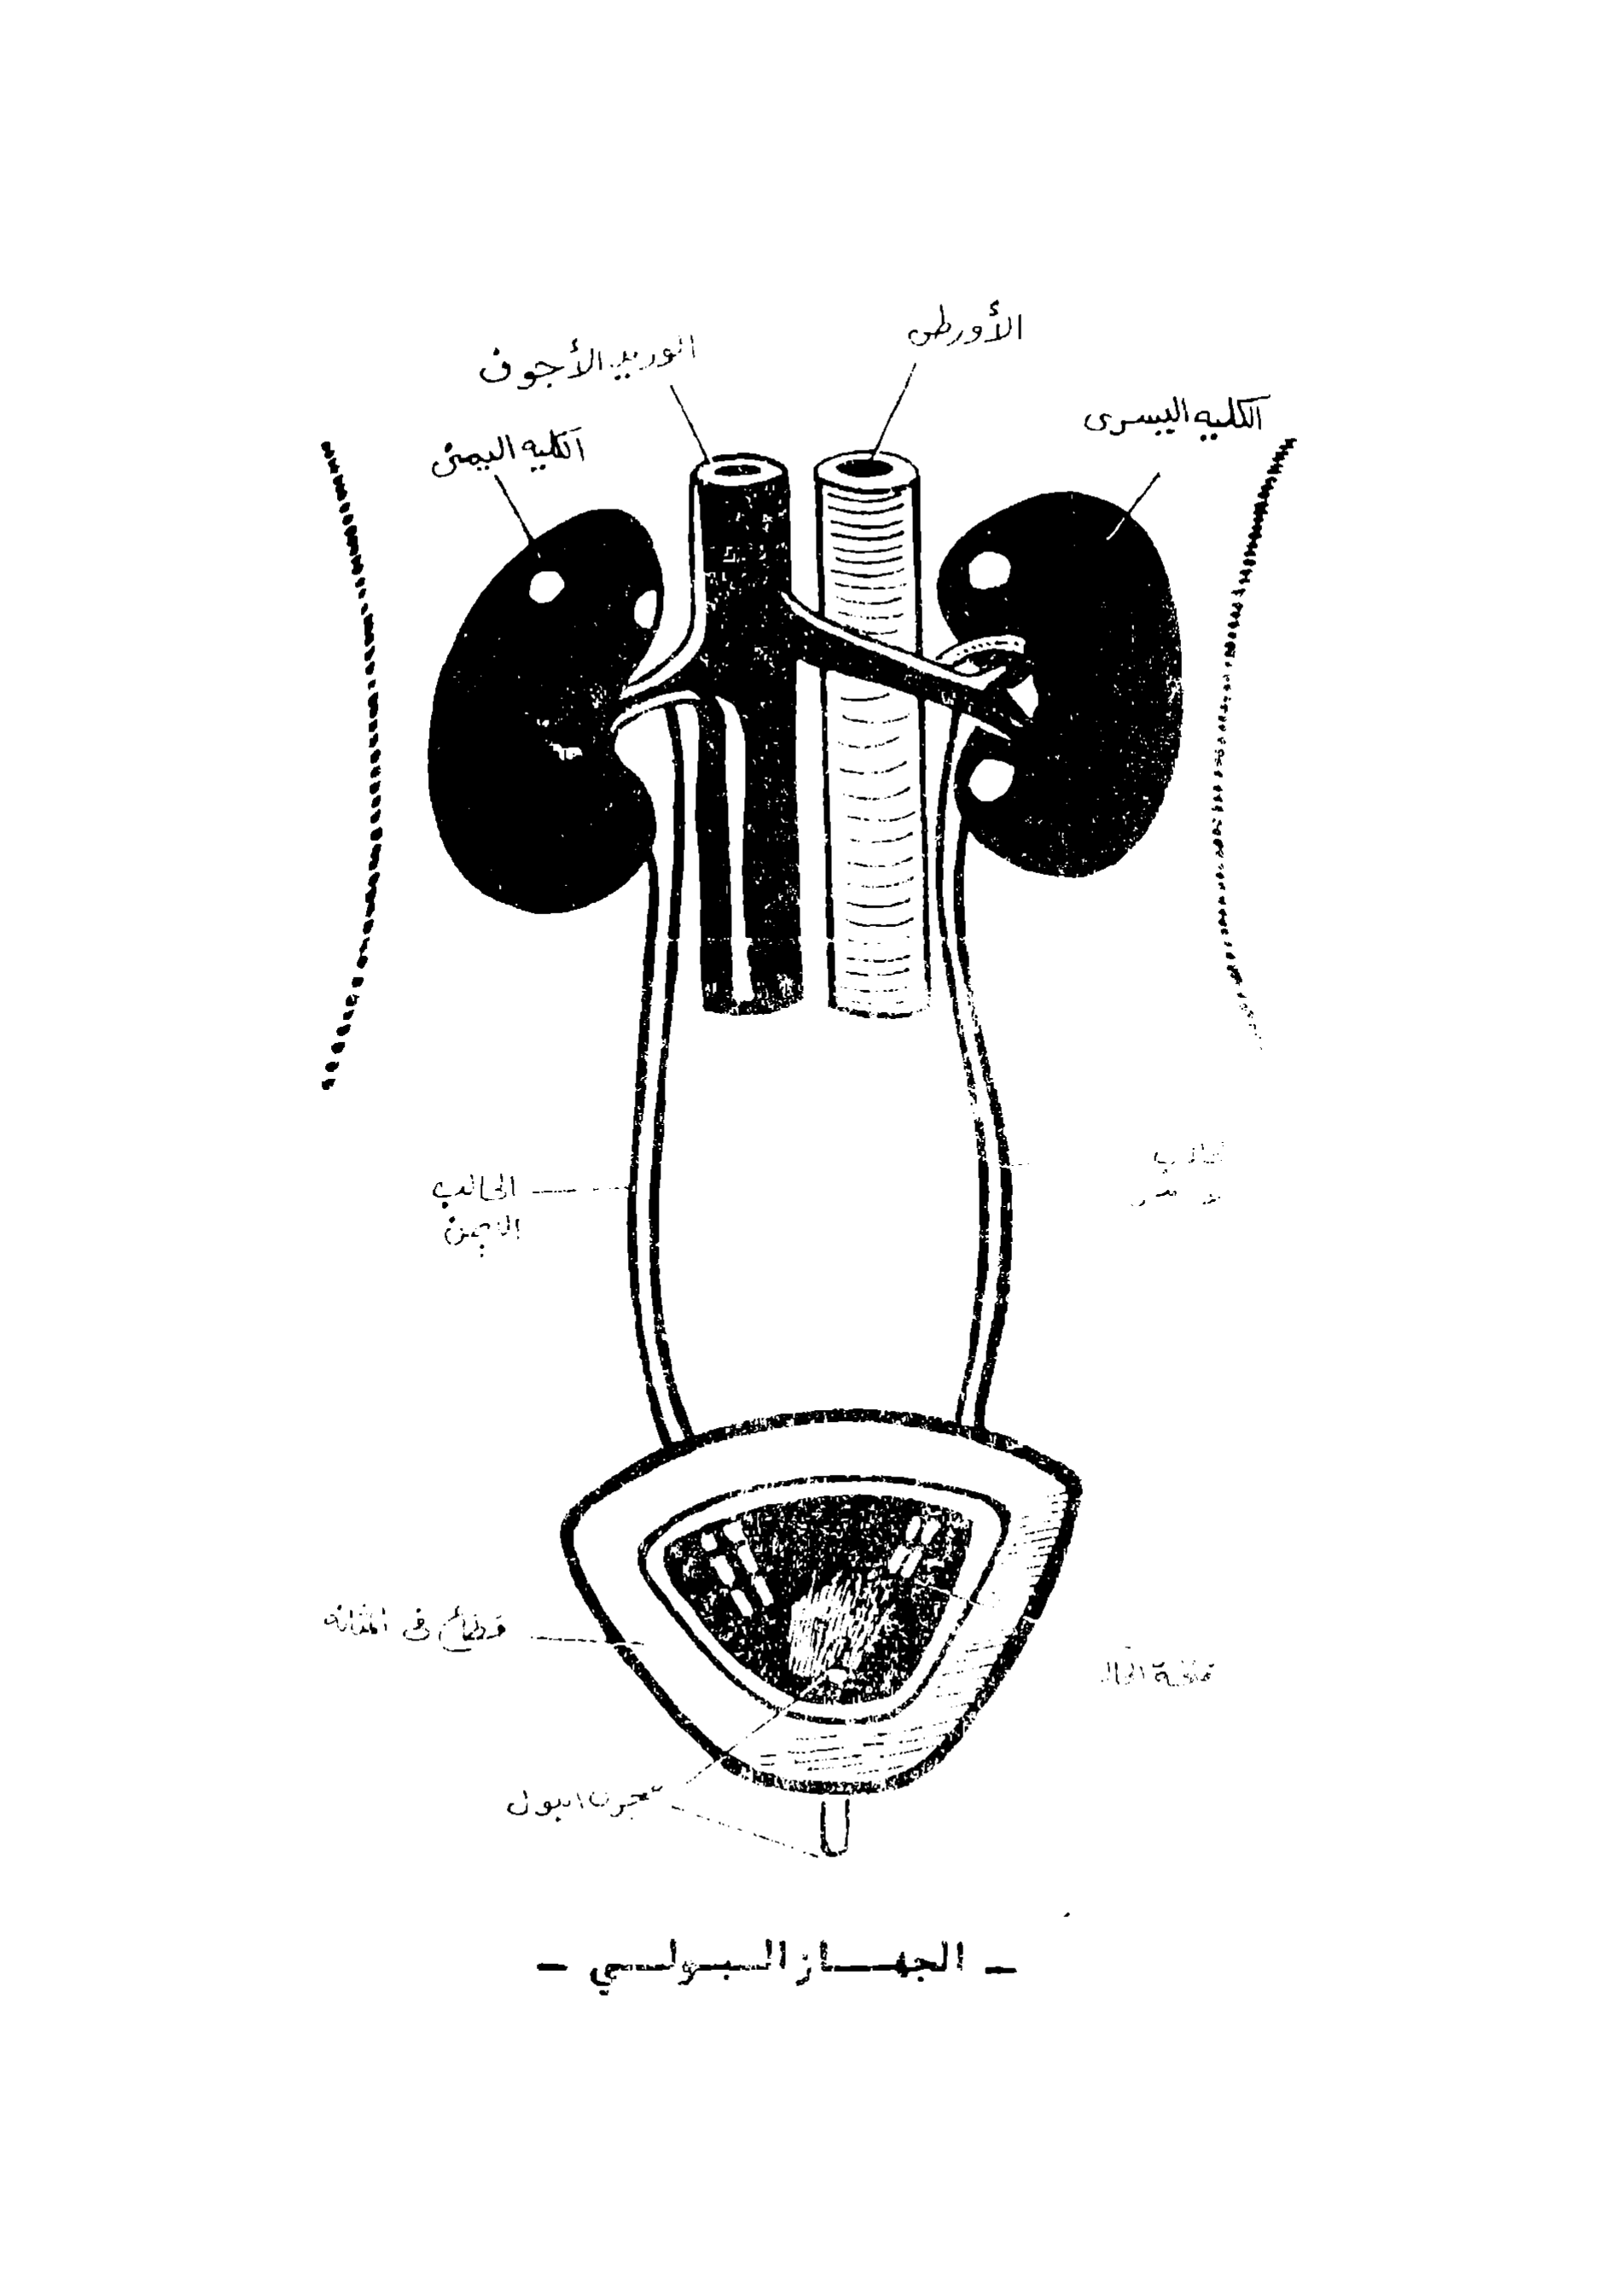 الأورطى
الوريد الأجوف
الكليه اليسرى
الكليه اليمنى
الحالب
الايمن
قطاع فى المثانه
مجرى البول
- الجهاز البولي -